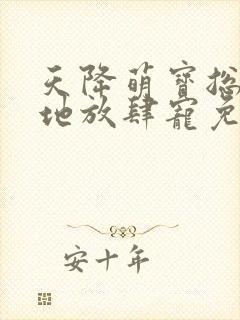 天降萌寶总
地放肆寵免
安十年